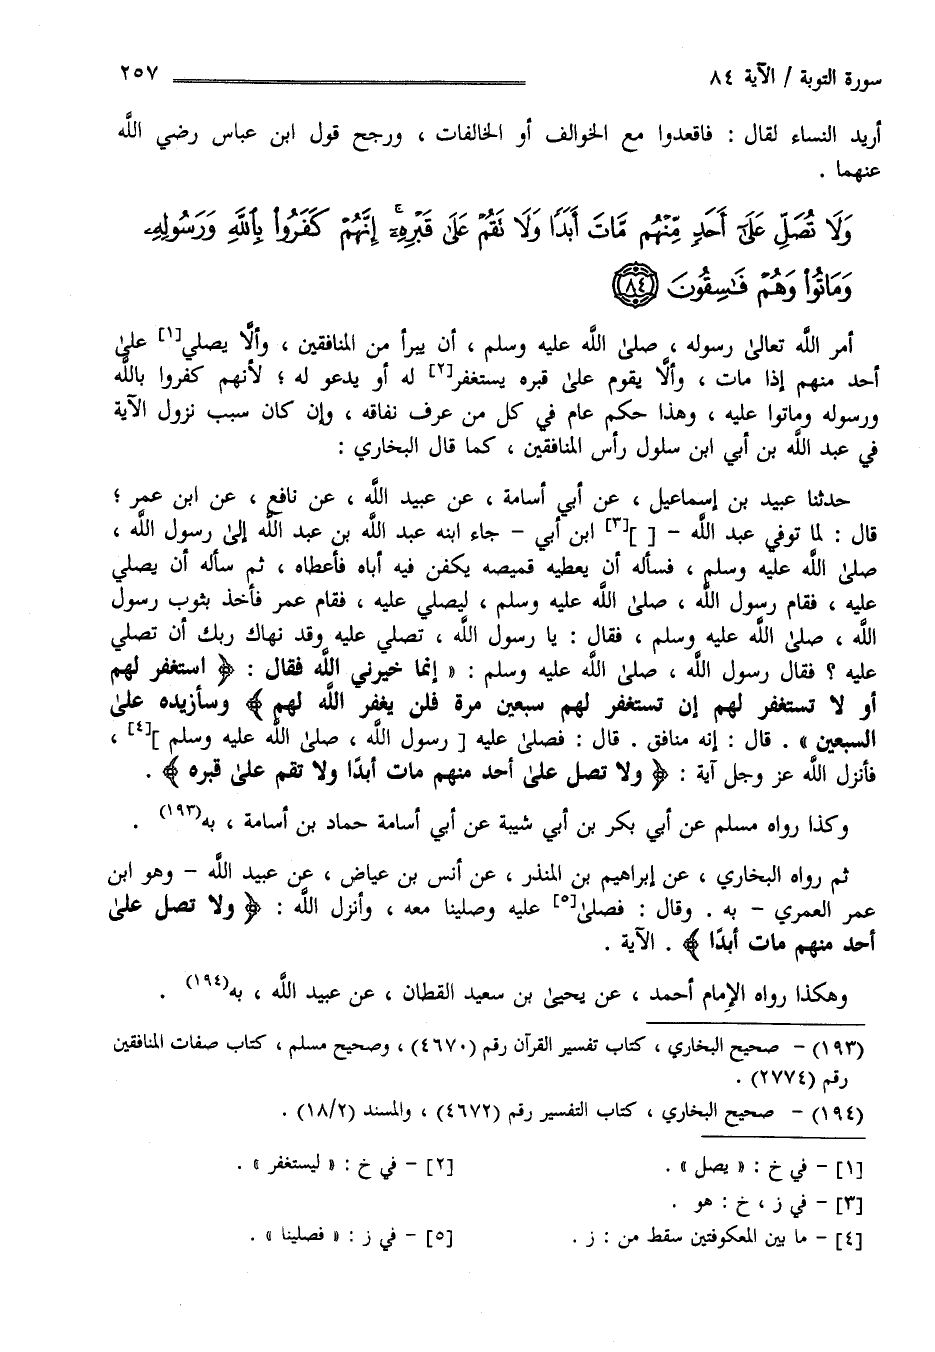 سورة التوبة / الآية ٨٤
٢٥٧
أريد النساء لقال : فاقعدوا مع الخوالف أو الخالفات ، ورجح قول ابن عباس رضي اللَّه
عنهما .
وَلَا تُصَلِّ عَلَىٰٓ أَحَدٍ مِّنْهُم مَّاتَ أَبَدًا وَلَا تَقُمْ عَلَىٰ قَبْرِهِۦٓ ۖ إِنَّهُمْ كَفَرُوا۟ بِٱللَّهِ وَرَسُولِهِۦ
وَمَاتُوا۟ وَهُمْ فَـٰسِقُونَ ﴿٨٤﴾
أمر اللَّه تعالىٰ رسوله ، صلىٰ اللَّه عليه وسلم ، أن يبرأ من المنافقين ، وألَّا يصلي[١] علىٰ
أحد منهم إذا مات ، وألَّا يقوم علىٰ قبره يستغفر[٢] له أو يدعو له ؛ لأنهم كفروا باللَّه
ورسوله وماتوا عليه ، وهذا حكم عام في كل من عرف نفاقه ، وإن كان سبب نزول الآية
في عبد اللَّه بن أبي ابن سلول رأس المنافقين ، كما قال البخاري :
حدثنا عبيد بن إسماعيل ، عن أبي أسامة ، عن عبيد اللَّه ، عن نافع ، عن ابن عمر ؛
قال : لما توفي عبد اللَّه – [ ][٣] ابن أبي – جاء ابنه عبد اللَّه بن عبد اللَّه إلىٰ رسول اللَّه ،
صلىٰ اللَّه عليه وسلم ، فسأله أن يعطيه قميصه يكفن فيه أباه فأعطاه ، ثم سأله أن يصلي
عليه ، فقام رسول اللَّه ، صلىٰ اللَّه عليه وسلم ، ليصلي عليه ، فقام عمر فأخذ بثوب رسول
اللَّه ، صلىٰ اللَّه عليه وسلم ، فقال : يا رسول اللَّه ، تصلي عليه وقد نهاك ربك أن تصلي
عليه ؟ فقال رسول اللَّه ، صلىٰ اللَّه عليه وسلم : « إنما خيرني اللَّه فقال : ﴿ استغفر لهم
أو لا تستغفر لهم إن تستغفر لهم سبعين مرة فلن يغفر اللَّه لهم ﴾ وسأزيده علىٰ
السبعين » . قال : إنه منافق . قال : فصلىٰ عليه [ رسول اللَّه ، صلىٰ اللَّه عليه وسلم ][٤] ،
فأنزل اللَّه عز وجل آية : ﴿ ولا تصل علىٰ أحد منهم مات أبدًا ولا تقم علىٰ قبره ﴾ .
وكذا رواه مسلم عن أبي بكر بن أبي شيبة عن أبي أسامة حماد بن أسامة ، به(١٩٣) .
ثم رواه البخاري ، عن إبراهيم بن المنذر ، عن أنس بن عياض ، عن عبيد اللَّه – وهو ابن
عمر العمري – به . وقال : فصلىٰ[٥] عليه وصلينا معه ، وأنزل اللَّه : ﴿ ولا تصل علىٰ
أحد منهم مات أبدًا ﴾ . الآية .
وهكذا رواه الإمام أحمد ، عن يحيىٰ بن سعيد القطان ، عن عبيد اللَّه ، به(١٩٤) .
(١٩٣) – صحيح البخاري ، كتاب تفسير القرآن رقم (٤٦٧٠) ، وصحيح مسلم ، كتاب صفات المنافقين
رقم (٢٧٧٤) .
(١٩٤) – صحيح البخاري ، كتاب التفسير رقم (٤٦٧٢) ، والمسند (١٨/٢) .
[١] – في خ : « يصل » .
[٢] – في خ : « ليستغفر » .
[٣] – في ز ، خ : هو .
[٤] – ما بين المعكوفتين سقط من : ز .
[٥] – في ز : « فصلينا » .